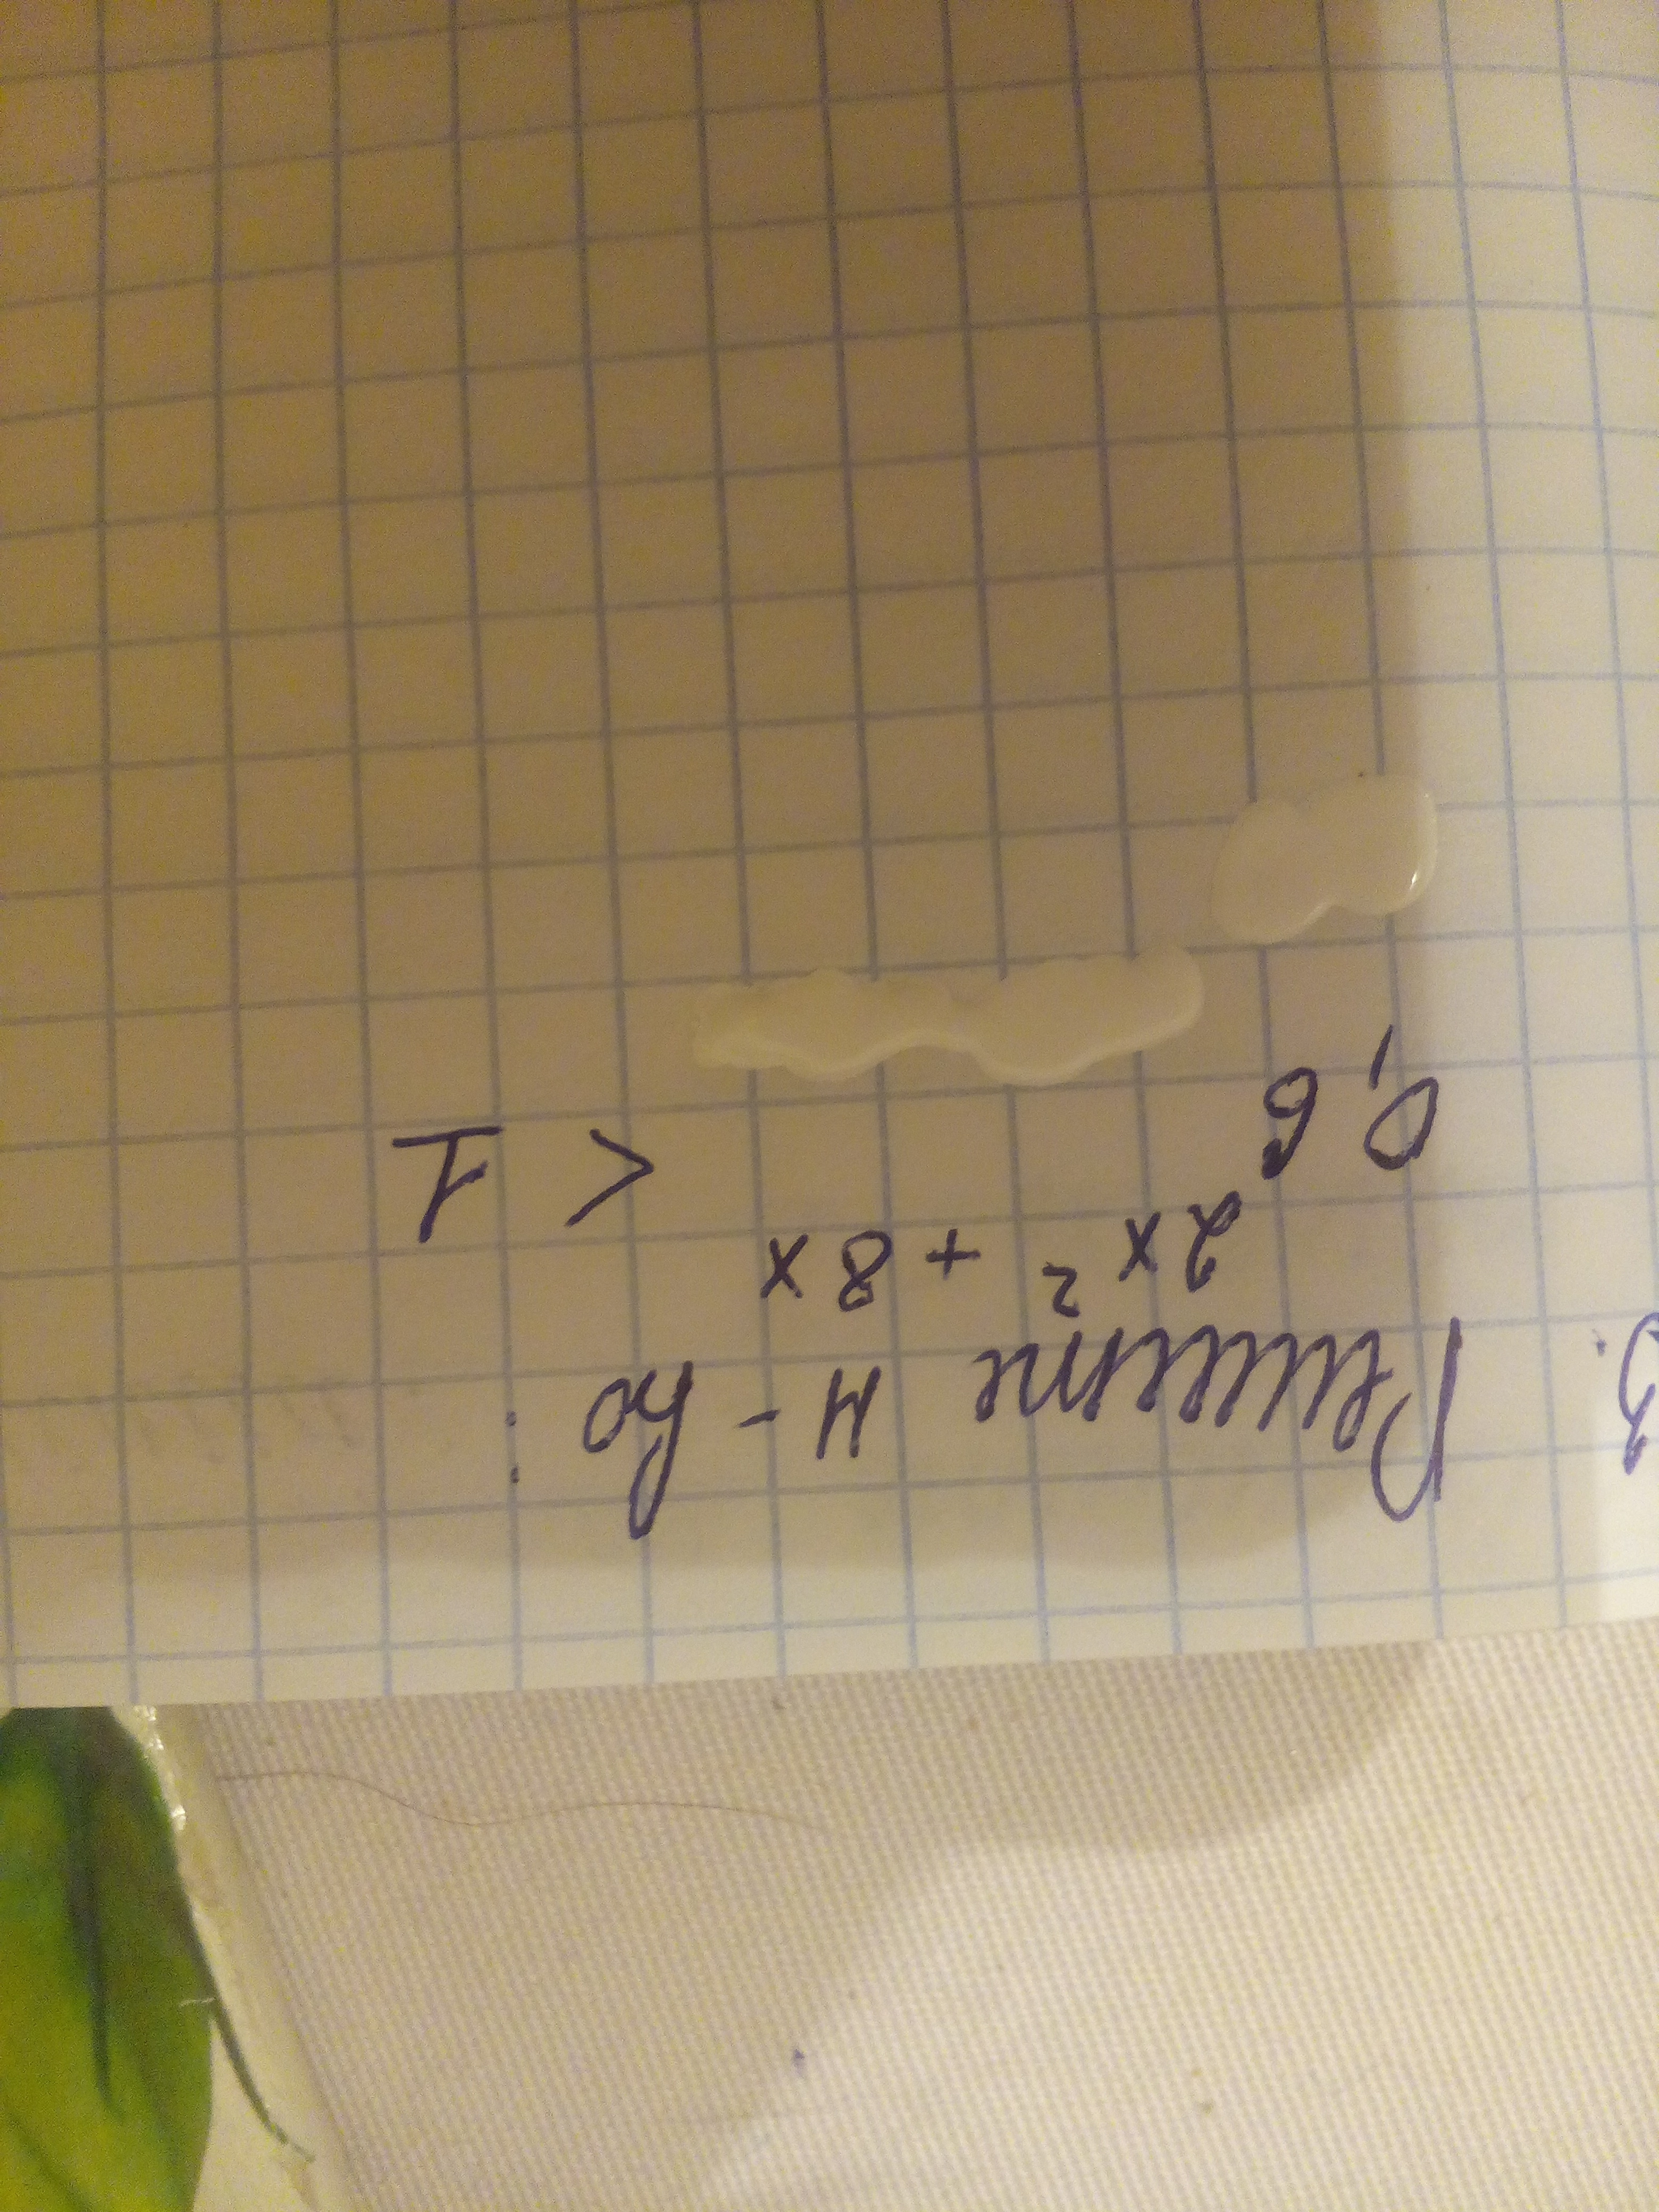 3. Решите н-во:
0,6 2x² + 8x < 1